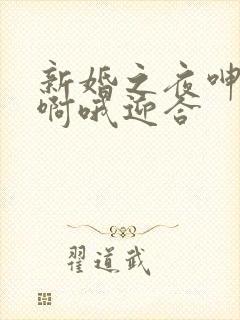 新婚之夜呻
啊哦迎合
翟道武